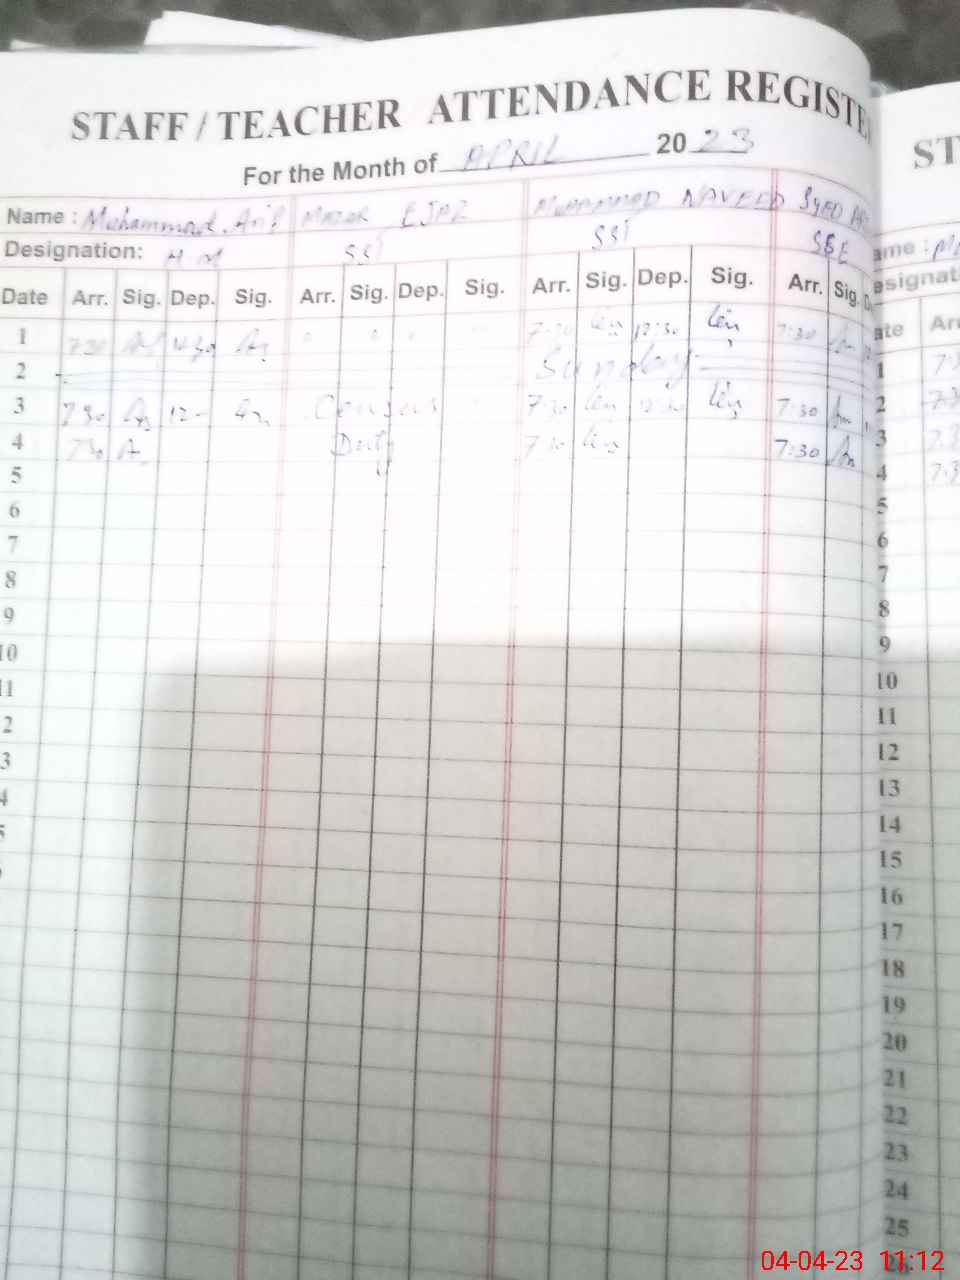 STAFF / TEACHER ATTENDANCE REGISTE
ST
For the Month of APRIL 20 23
Name : Mohammad Arif EJAZ MUHAMMAD NAVEED SYED
ame :
Designation: H M SST SST SSE
esignati
Date Arr. Sig. Dep. Sig. Arr. Sig. Dep. Sig. Arr. Sig. Dep. Sig. Arr. Sig. D
ate Arr
1 7:30 7:30 12:30 7:30
2 Sunday
3 7:30 12 Census 7:30 12:30 7:30
4 7:30 Duty 7:30 7:30
5
6
7
8
9
10
11
2
3
4
5
1 7:3
2 7:3
3 7:3
4 7:3
5
6
7
8
9
10
11
12
13
14
15
16
17
18
19
20
21
22
23
24
25
26
04-04-23 11:12